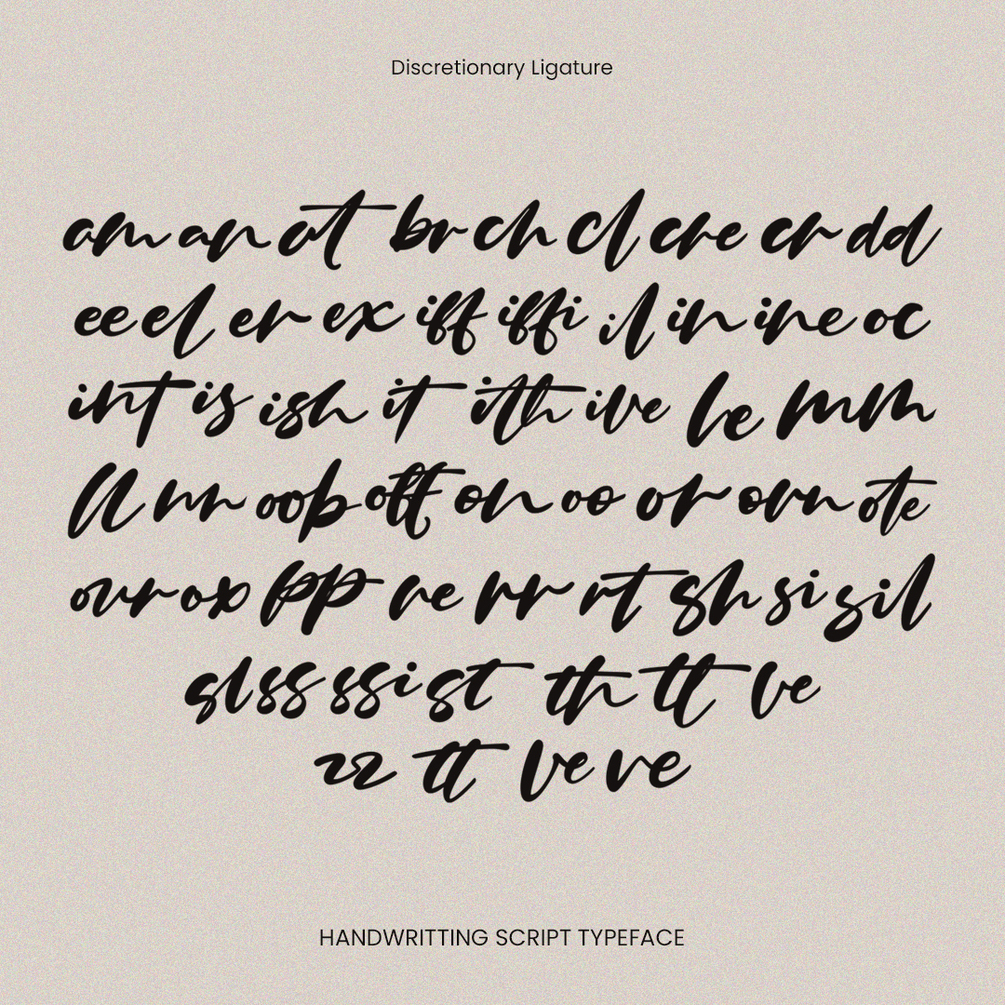 Discretionary Ligature
am an at br ch cl cre cr dd
ee el er ex iff iffi il in ine oc
int is ish it ith ive le mm
ll nn oob off on oo or orn ote
our ox pp re rr rt sh si sil
sl ss ssi st th tt ve
zz tt ve ve
HANDWRITTING SCRIPT TYPEFACE